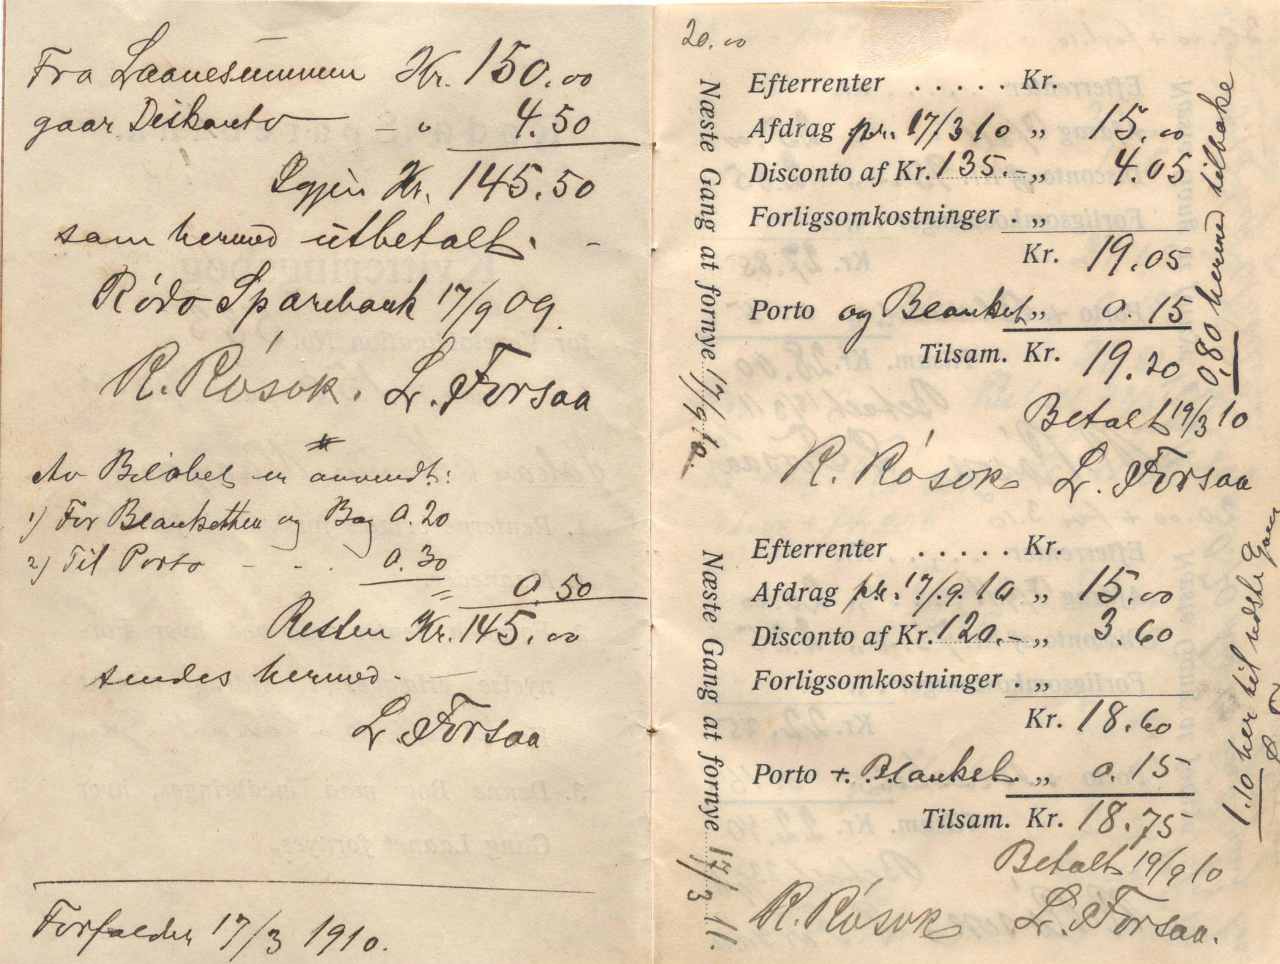 Fra Laanesummen Kr. 150.00
gaar Diskonto — - „ 4.50
Igjen Kr. 145.50
som hermed utbetalt. -
Rödö Sparebank 17/9 09.
R. Rösok. L. Forsaa
Av Belöbet er anvendt:
1) For Blanketten og Bog 0.20
2) Til Porto - . . 0.30
0.50
Resten Kr. 145.00
sendes hermed.
L. Forsaa
Forfalder 17/3 1910.
20.00
Efterrenter . . . . . Kr.
Afdrag pr. 17/3 10 „ 15.00
Disconto af Kr. 135.- „ 4.05
Forligsomkostninger . „
Kr. 19.05
Porto og Blanket „ 0.15
Tilsam. Kr. 19.20
Betalt 19/3 10
R. Rösok L. Forsaa
Næste Gang at fornye 17/9 10.
0,80 herved tilbake
Efterrenter . . . . . Kr.
Afdrag pr. 17/9 10 „ 15.00
Disconto af Kr. 120.- „ 3.60
Forligsomkostninger . „
Kr. 18.60
Porto + Blanket. „ 0.15
Tilsam. Kr. 18.75
Betalt 19/9 10
R. Rösok L. Forsaa.
Næste Gang at fornye 17/3 11.
1.10 her til næste Gang